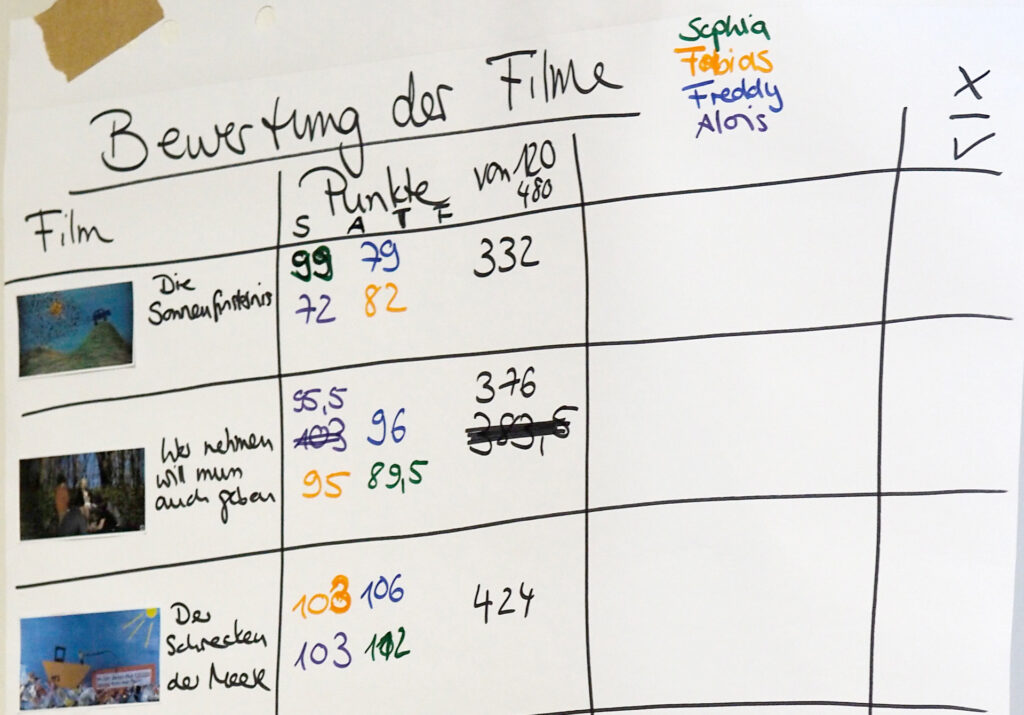 Sophia
Tobias
Freddy
Alois
Bewertung der Filme
X
✓
Film
Punkte von 120
480
S A T F
Die
Sonnenfinsternis
99 79
72 82
332
Wer nehmen
will muss
auch geben
95,5
103 96
95 89,5
376
383,5
Der
Schrecken
der Meere
103 106
103 112
424